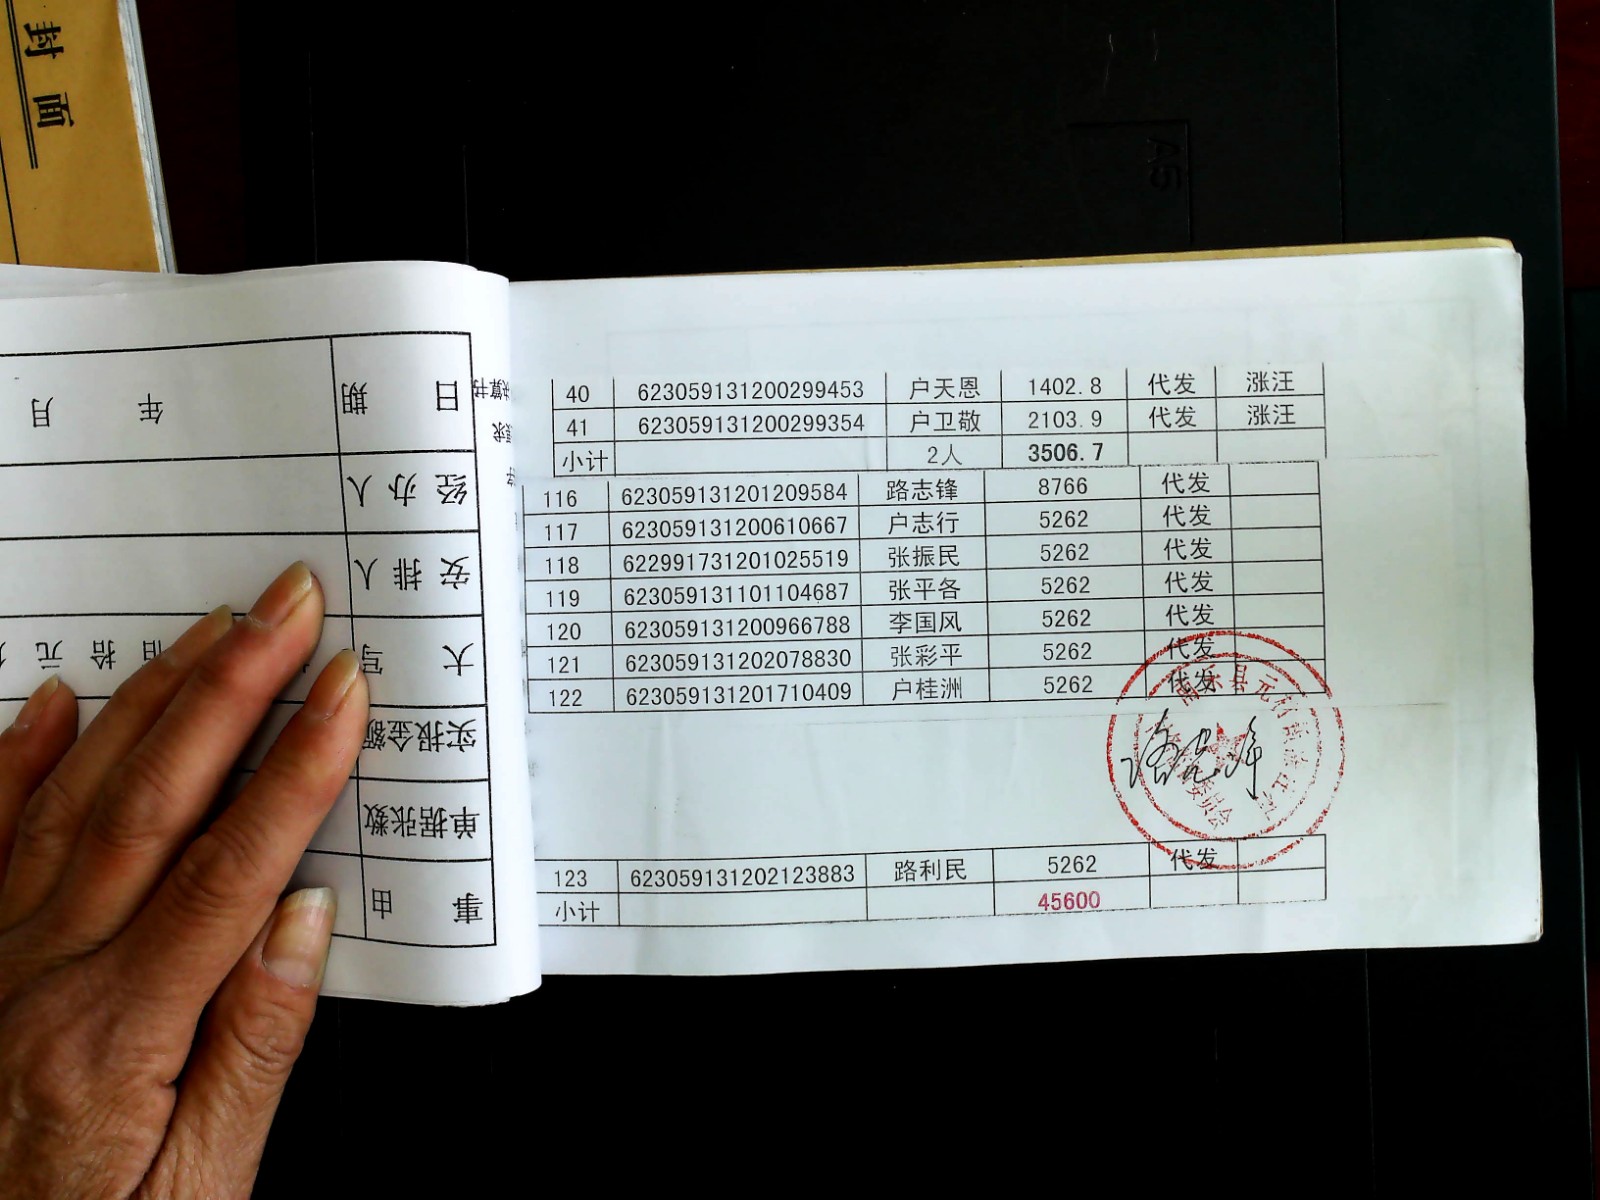 封面
A5
40 623059131200299453 户天恩 1402.8 代发 涨汪
41 623059131200299354 户卫敬 2103.9 代发 涨汪
小计 2人 3506.7
116 623059131201209584 路志锋 8766 代发
117 623059131200610667 户志行 5262 代发
118 622991731201025519 张振民 5262 代发
119 623059131101104687 张平各 5262 代发
120 623059131200966788 李国风 5262 代发
121 623059131202078830 张彩平 5262 代发
122 623059131201710409 户桂洲 5262 代发
123 623059131202123883 路利民 5262 代发
小计 45600
事由
单据张数
实报金额
大写 佰拾元
安排人
经办人
日期 年月